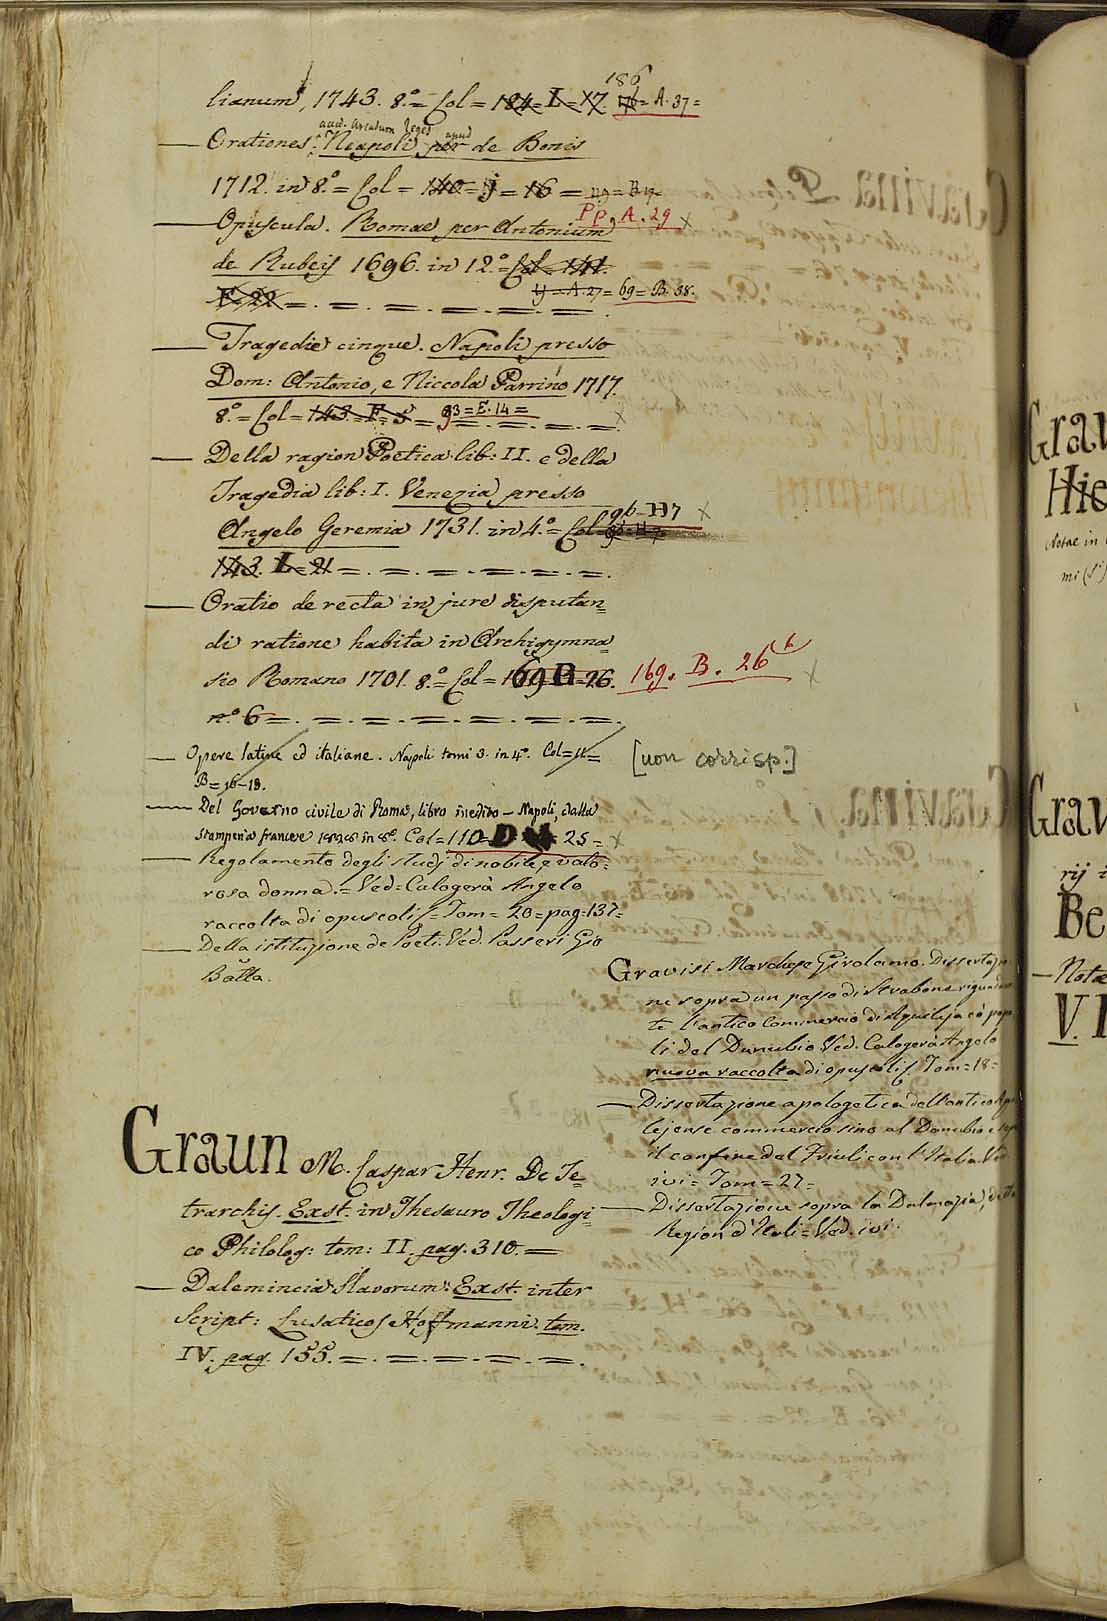 lianum, 1743. 8.º = Col = 184 = L = 17. 186 = A. 37 =
— Orationes: Neapoli per de Bonis
acced. Arcadum Leges apud
1712. in 8.º = Col = 140 = j = 16 = 119 = B 17.
PP. A. 29 X
— Opuscula. Romae per Antonium
de Rubeis 1696. in 12.º = Col = 141.
F. 22 = . = . = . = . = . = . 19 = A. 27 = 69 = B. 38.
— Tragedie cinque. Napoli presso
Dom: Antonio, e Niccola Parrino 1717.
8.º = Col = 143. F. 5 = 93 = E. 14 = X
— Della ragion Poetica lib: II. e della
Tragedia lib: I. Venezia presso
Angelo Geremia 1731. in 4.º = Col = 96 - H 7 X
143. L = 21 = . = . = . = . = . = .
— Oratio de recta in jure disputan=
di ratione habita in Archigymna=
sio Romano 1701. 8.º = Col = 169 B = 26. 169. B. 26 X
n.º 6 = . = . = . = . = . = . = .
— Opere latine ed italiane. Napoli tomi 3. in 4º. Col = 11 = [non corrisp.]
B = 16 - 18.
— Del Governo civile di Roma, libro inedito - Napoli, dalla
Stamperia francese 1828 in 8º. Col = 110 = D 25 = X
— Regolamento degli studj di nobile, e valo=
rosa donna = Ved = Calogerà Angelo
raccolta di opuscoli = Tom = 20 = pag = 137 =
— Della istituzione de Poeti. Ved. Passeri Gio
Batta.
Gravisi Marchese Girolamo. Dissertazio
ne sopra un passo di Strabone riguardan
te l'antico Commercio di Aquileja cò popo
li del Danubio Ved. Calogerà Angelo
nuova raccolta di opuscoli. Tom = 18 =
— Dissertazione apologetica dell'antico Aqui
lejense commercio sino al Danubio e sopra
il confine del Friuli con l'Italia Ved.
ivi = Tom = 27 =
— Dissertazione sopra la Dalmazia, detta
Region d'Itali = Ved. ivi.
Graun M. Caspar Henr. De Te=
trarchis. Exst. in Thesauro Theologi=
co Philolog: tom: II. pag. 310. =
— Dalemincia Slavorum: Exst. inter
Script: Lusaticos Hoffmanni. tom.
IV. pag. 155. = . = . = . = . = .
Grav
Hie
Notae in
Grav
rij
Be
— Nota
V.